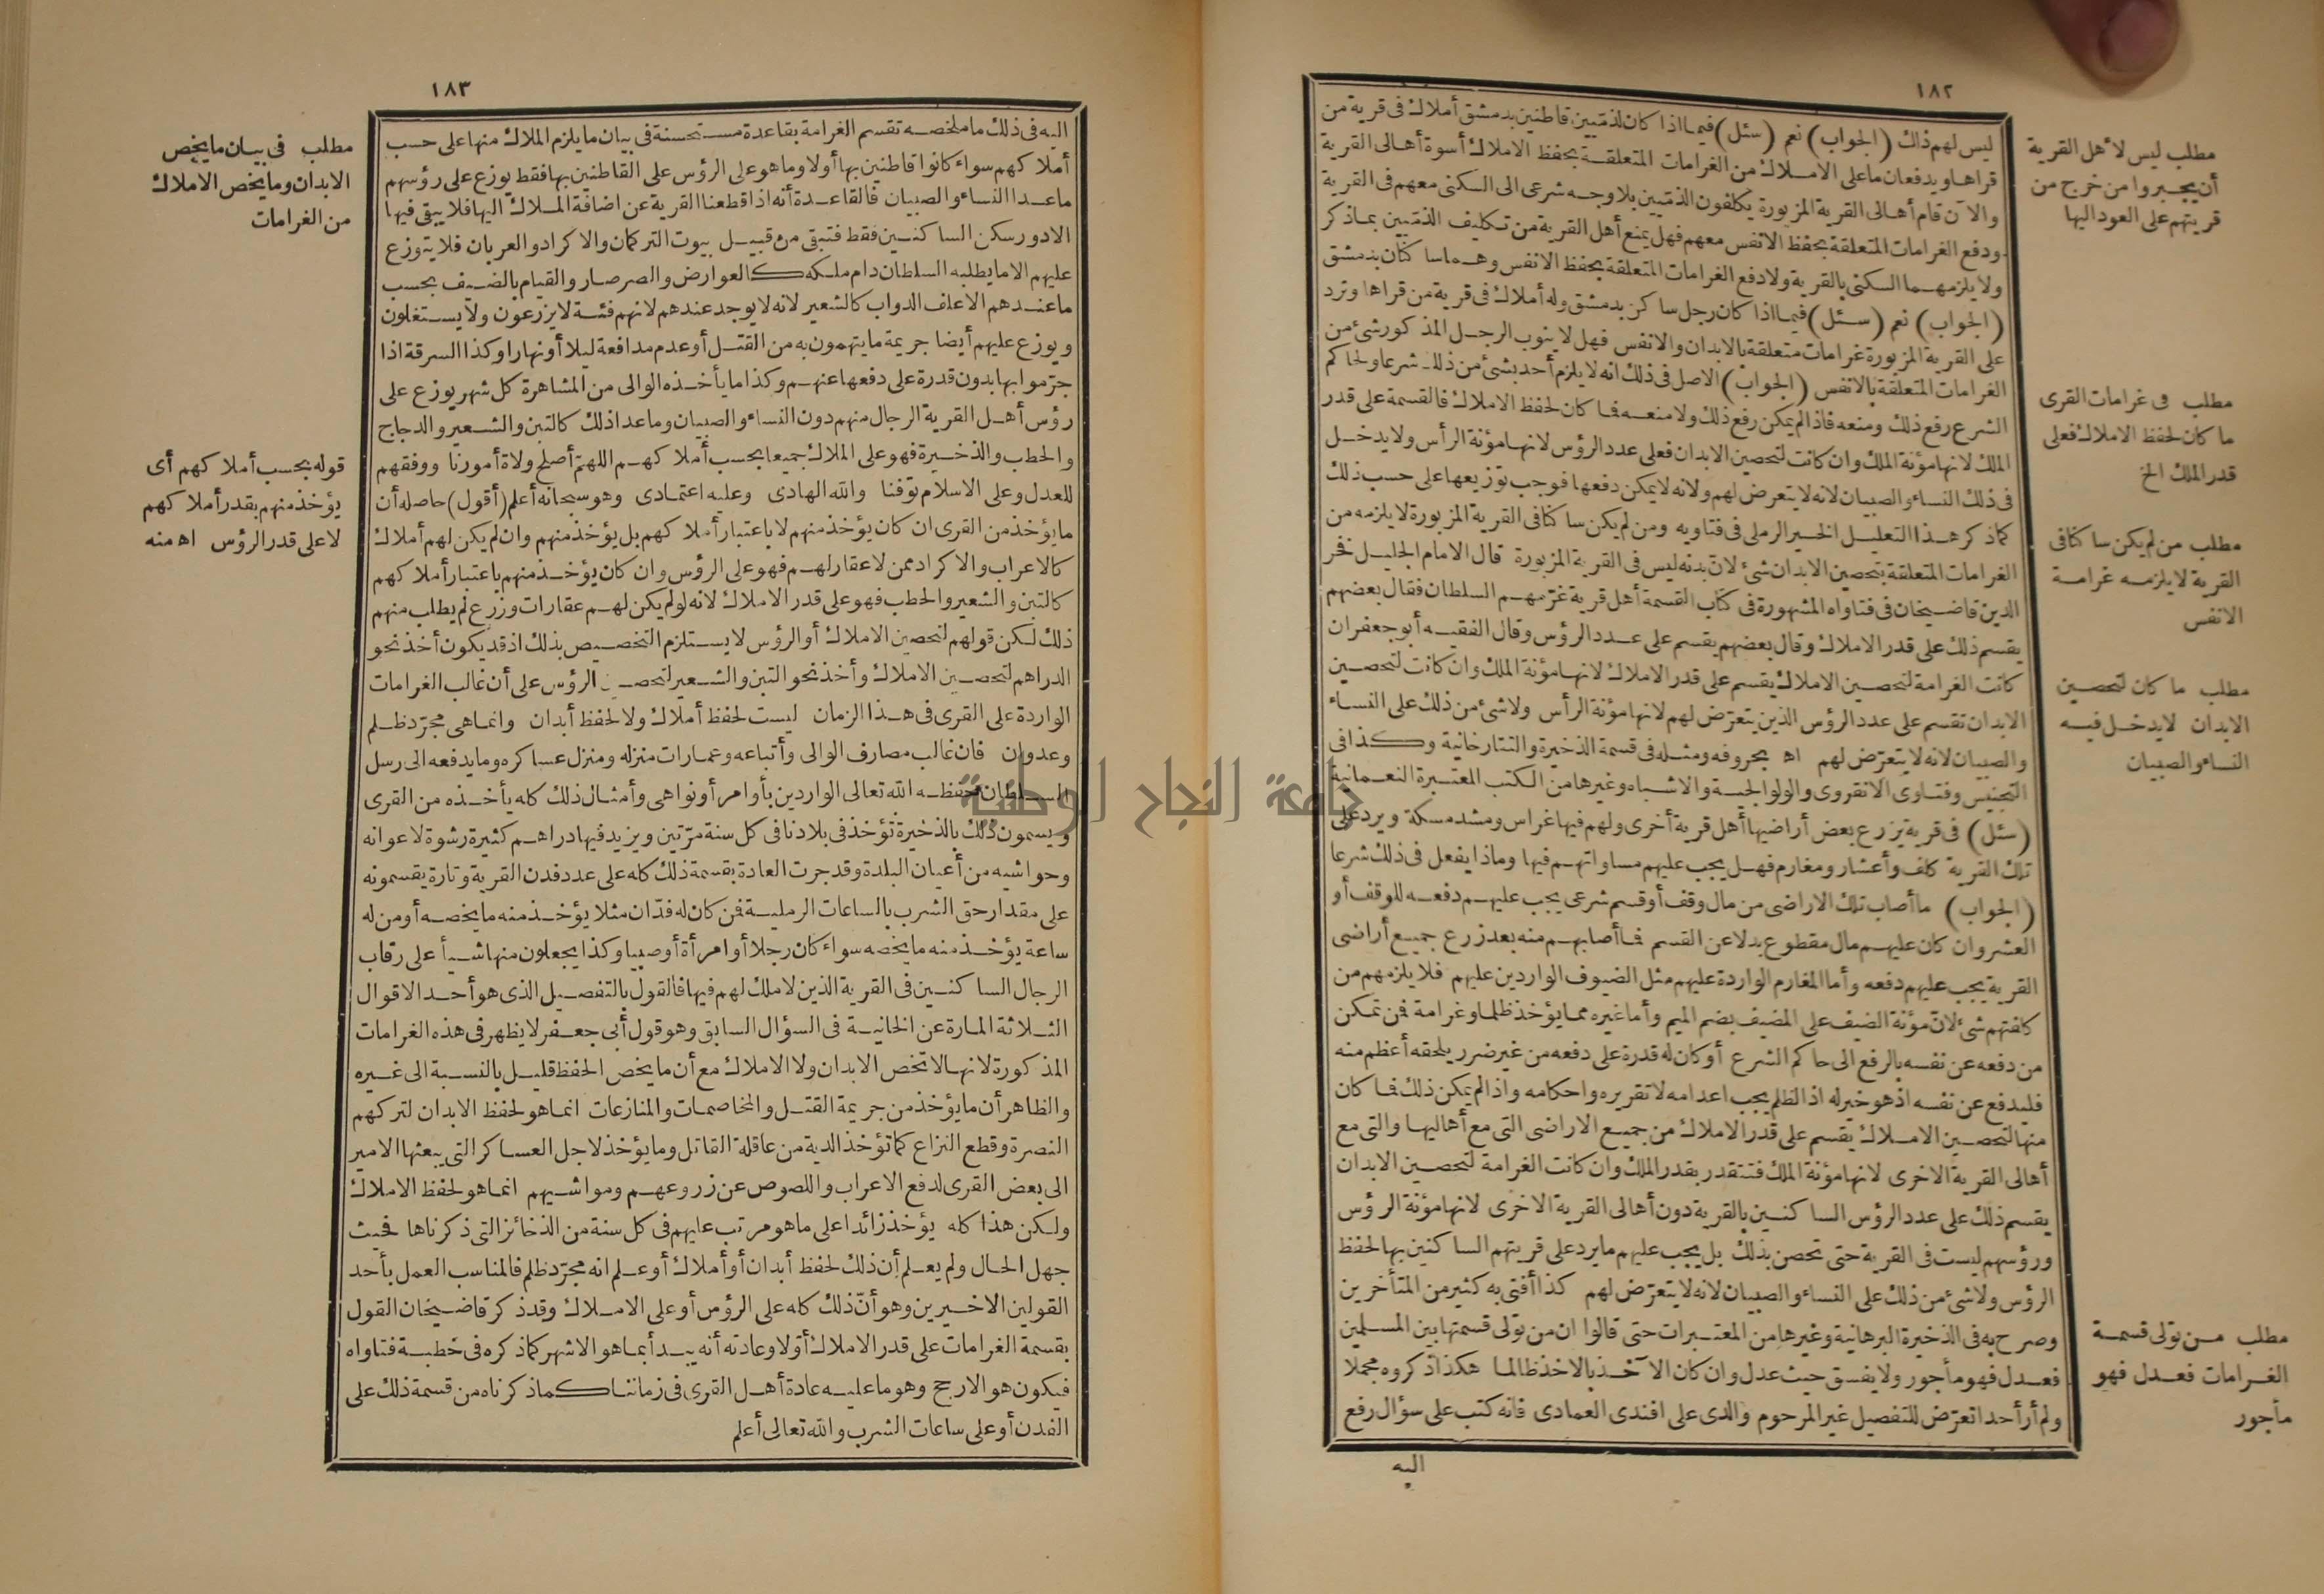 ١٨٢
ليس لهم ذلك (الجواب) نعم (سئل) فيما اذا كان لذميين قاطنين بدمشق أملاك فى قرية من
قراها ويدفعان ما على الاملاك من الغرامات المتعلقة بحفظ الاملاك أسوة أهالى القرية
والآن قام أهالى القرية المزبورة يكلفون الذميين بلا وجه شرعى الى السكنى معهم فى القرية
ودفع الغرامات المتعلقة بحفظ الانفس معهم فهل يمنع أهل القرية من تكليف الذميين بماذكر
ولا يلزمهما السكنى بالقرية ولا دفع الغرامات المتعلقة بحفظ الانفس وهما ساكنان بدمشق
(الجواب) نعم (سئل) فيما اذا كان رجل ساكن بدمشق وله أملاك فى قرية من قراها وترد
على القرية المزبورة غرامات متعلقة بالابدان والانفس فهل لا ينوب الرجل المذكور شئ من
الغرامات المتعلقة بالانفس (الجواب) الاصل فى ذلك انه لا يلزم أحد بشئ من ذلك شرعا ولحاكم
الشرع رفع ذلك ومنعه فاذا لم يمكن رفع ذلك ولا منعه فما كان لحفظ الاملاك فالقسمة على قدر
الملك لانها مؤنة الملك وان كانت لتحصين الابدان فعلى عدد الرؤس لانها مؤنة الرأس ولا يدخل
فى ذلك النساء والصبيان لانه لا يتعرض لهم ولانه لا يمكن دفعها فوجب توزيعها على حسب ذلك
كما ذكر هذا التعليل الخير الرملى فى فتاويه ومن لم يكن ساكنا فى القرية المزبورة لا يلزمه من
الغرامات المتعلقة بتحصين الابدان شئ لان بدنه ليس فى القرية المزبورة قال الامام الجليل فخر
الدين قاضيخان فى فتاواه المشهورة فى كتاب القسمة أهل قرية غرمهم السلطان فقال بعضهم
يقسم ذلك على قدر الاملاك وقال بعضهم يقسم على عدد الرؤس وقال الفقيه أبو جعفر ان
كانت الغرامة لتحصين الاملاك يقسم على قدر الاملاك لانها مؤنة الملك وان كانت لتحصين
الابدان تقسم على عدد الرؤس الذين يتعرض لهم لانها مؤنة الرأس ولا شئ من ذلك على النساء
والصبيان لانه لا يتعرض لهم اه بحروفه ومثله فى قسمة الذخيرة والتتارخانية وكذا فى
التجنيس وفتاوى الانقروى والولوالجية والاشباه وغيرها من الكتب المعتبرة النعمانية
(سئل) فى قرية يزرع بعض أراضيها أهل قرية أخرى ولهم فيها غراس ومشد مسكة ويرد على
تلك القرية كلف وأعشار ومغارم فهل يجب عليهم مساواتهم فيها وماذا يفعل فى ذلك شرعا
(الجواب) ما أصاب تلك الاراضى من مال وقف أو قسم شرعى يجب عليهم دفعه للوقف أو
العشر وان كان عليهم مال مقطوع بدلا عن القسم فما أصابهم منه بعد زرع جميع أراضى
القرية يجب عليهم دفعه وأما المغارم الواردة عليهم مثل الضيوف الواردين عليهم فلا يلزمهم من
كلفتهم شئ لان مؤنة الضيف على المضيف بضم الميم وأما غيره مما يؤخذ ظلما وغرامة فمن تمكن
من دفعه عن نفسه بالرفع الى حاكم الشرع أو كان له قدرة على دفعه من غير ضرر يلحقه أعظم منه
فليدفع عن نفسه اذ هو خير له اذ الظلم يجب اعدامه لا تقريره واحكامه واذا لم يمكن ذلك فما كان
منها لتحصين الاملاك يقسم على قدر الاملاك من جميع الاراضى التى مع أهاليها والتى مع
أهالى القرية الاخرى لانها مؤنة الملك فتتقدر بقدر الملك وان كانت الغرامة لتحصين الابدان
يقسم ذلك على عدد الرؤس الساكنين بالقرية دون أهالى القرية الاخرى لانها مؤنة الرؤس
ورؤسهم ليست فى القرية حتى تحصن بذلك بل يجب عليهم ما يرد على قريتهم الساكنين بها لحفظ
الرؤس ولا شئ من ذلك على النساء والصبيان لانه لا يتعرض لهم كذا أفتى به كثير من المتأخرين
وصرح به فى الذخيرة البرهانية وغيرها من المعتبرات حتى قالوا ان من تولى قسمتها بين المسلمين
فعدل فهو مأجور ولا يفسق حيث عدل وان كان الآخذ بالاخذ ظالما هكذا ذكروه مجملا
ولم أر أحدا تعرض للتفصيل غير المرحوم والدى على افندى العمادى فانه كتب على سؤال رفع
اليه
مطلب ليس لأهل القرية
أن يجبروا من خرج من
قريتهم على العود اليها
مطلب فى غرامات القرى
ما كان لحفظ الاملاك فعلى
قدر الملك الخ
مطلب من لم يكن ساكنا فى
القرية لا يلزمه غرامة
الانفس
مطلب ما كان لتحصين
الابدان لا يدخل فيه
النساء والصبيان
مطلب من تولى قسمة
الغرامات فعدل فهو
مأجور
١٨٣
اليه فى ذلك ما ملخصه تقسم الغرامة بقاعدة مستحسنة فى بيان ما يلزم الملاك منها على حسب
أملاكهم سواء كانوا قاطنين بها أولا وما هو على الرؤس على القاطنين بها فقط يوزع على رؤسهم
ماعدا النساء والصبيان فالقاعدة أنه اذا قطعنا القرية عن اضافة الملاك اليها فلا يبقى فيها
الا دور سكن الساكنين فقط فتبقى من قبيل بيوت التركمان والاكراد والعربان فلا يتوزع
عليهم الا ما يطلبه السلطان دام ملكه كالعوارض والصرصار والقيام بالضيف بحسب
ما عندهم الا علف الدواب كالشعير لانه لا يوجد عندهم لانهم فئة لا يزرعون ولا يستغلون
ويوزع عليهم أيضا جريمة ما يتهمون به من القتل أو عدم مدافعة ليلا أو نهارا وكذا السرقة اذا
جرموا بها بدون قدرة على دفعها عنهم وكذا ما يأخذه الوالى من المشاهرة كل شهر يوزع على
رؤس أهل القرية الرجال منهم دون النساء والصبيان وما عدا ذلك كالتبن والشعير والدجاج
والحطب والذخيرة فهو على الملاك جميعا بحسب أملاكهم اللهم أصلح ولاة أمورنا ووفقهم
للعدل وعلى الاسلام توفنا والله الهادى وعليه اعتمادى وهو سبحانه أعلم (أقول) حاصله أن
ما يؤخذ من القرى ان كان يؤخذ منهم لا باعتبار أملاكهم بل يؤخذ منهم وان لم يكن لهم أملاك
كالاعراب والاكراد ممن لا عقار لهم فهو على الرؤس وان كان يؤخذ منهم باعتبار أملاكهم
كالتبن والشعير والحطب فهو على قدر الاملاك لانه لو لم يكن لهم عقارات وزرع لم يطلب منهم
ذلك لكن قولهم لتحصين الاملاك أو الرؤس لا يستلزم التخصيص بذلك اذ قد يكون أخذ نحو
الدراهم لتحصين الاملاك وأخذ نحو التبن والشعير لتحصين الرؤس على أن غالب الغرامات
الواردة على القرى فى هذا الزمان ليست لحفظ أملاك ولا لحفظ أبدان وانما هى مجرد ظلم
وعدوان فان غالب مصارف الوالى وأتباعه وعمارات منزله ومنزل عساكره وما يدفعه الى رسل
السلطان حفظه الله تعالى الواردين بأوامر أو نواهى وأمثال ذلك كله يأخذه من القرى
ويسمون ذلك بالذخيرة تؤخذ فى بلادنا فى كل سنة مرتين ويزيد فيها دراهم كثيرة رشوة لاعوانه
وحواشيه من أعيان البلدة وقد جرت العادة بقسمة ذلك كله على عدد فدن القرية وتارة يقسمونه
على مقدار حق الشرب بالساعات الرملية فمن كان له فدان مثلا يؤخذ منه ما يخصه أو من له
ساعة يؤخذ منه ما يخصه سواء كان رجلا أو امرأة أو صبيا وكذا يجعلون منها شيأ على رقاب
الرجال الساكنين فى القرية الذين لا ملك لهم فيها فالقول بالتفصيل الذى هو أحد الاقوال
الثلاثة المارة عن الخانية فى السؤال السابق وهو قول أبى جعفر لا يظهر فى هذه الغرامات
المذكورة لانها لا تخص الابدان ولا الاملاك مع أن ما يخص الحفظ قليل بالنسبة الى غيره
والظاهر أن ما يؤخذ من جريمة القتل والمخاصمات والمنازعات انما هو لحفظ الابدان لتركهم
النصرة وقطع النزاع كما تؤخذ الدية من عاقلة القاتل وما يؤخذ لاجل العساكر التى يبعثها الامير
الى بعض القرى لدفع الاعراب واللصوص عن زروعهم ومواشيهم انما هو لحفظ الاملاك
ولكن هذا كله يؤخذ زائدا على ما هو مرتب عليهم فى كل سنة من الذخائر التى ذكرناها فحيث
جهل الحال ولم يعلم أن ذلك لحفظ أبدان أو أملاك أو علم انه مجرد ظلم فالمناسب العمل بأحد
القولين الاخيرين وهو أن ذلك كله على الرؤس أو على الاملاك وقد ذكر قاضيخان القول
بقسمة الغرامات على قدر الاملاك أولا وعادته أنه يبدأ بما هو الاشهر كما ذكره فى خطبة فتاواه
فيكون هو الارجح وهو ما عليه عادة أهل القرى فى زماننا كما ذكرناه من قسمة ذلك على
الفدن أو على ساعات الشرب والله تعالى أعلم
مطلب فى بيان ما يخص
الابدان وما يخص الاملاك
من الغرامات
قوله بحسب أملاكهم أى
يؤخذ منهم بقدر أملاكهم
لا على قدر الرؤس اه منه
جامعة النجاح الوطنية